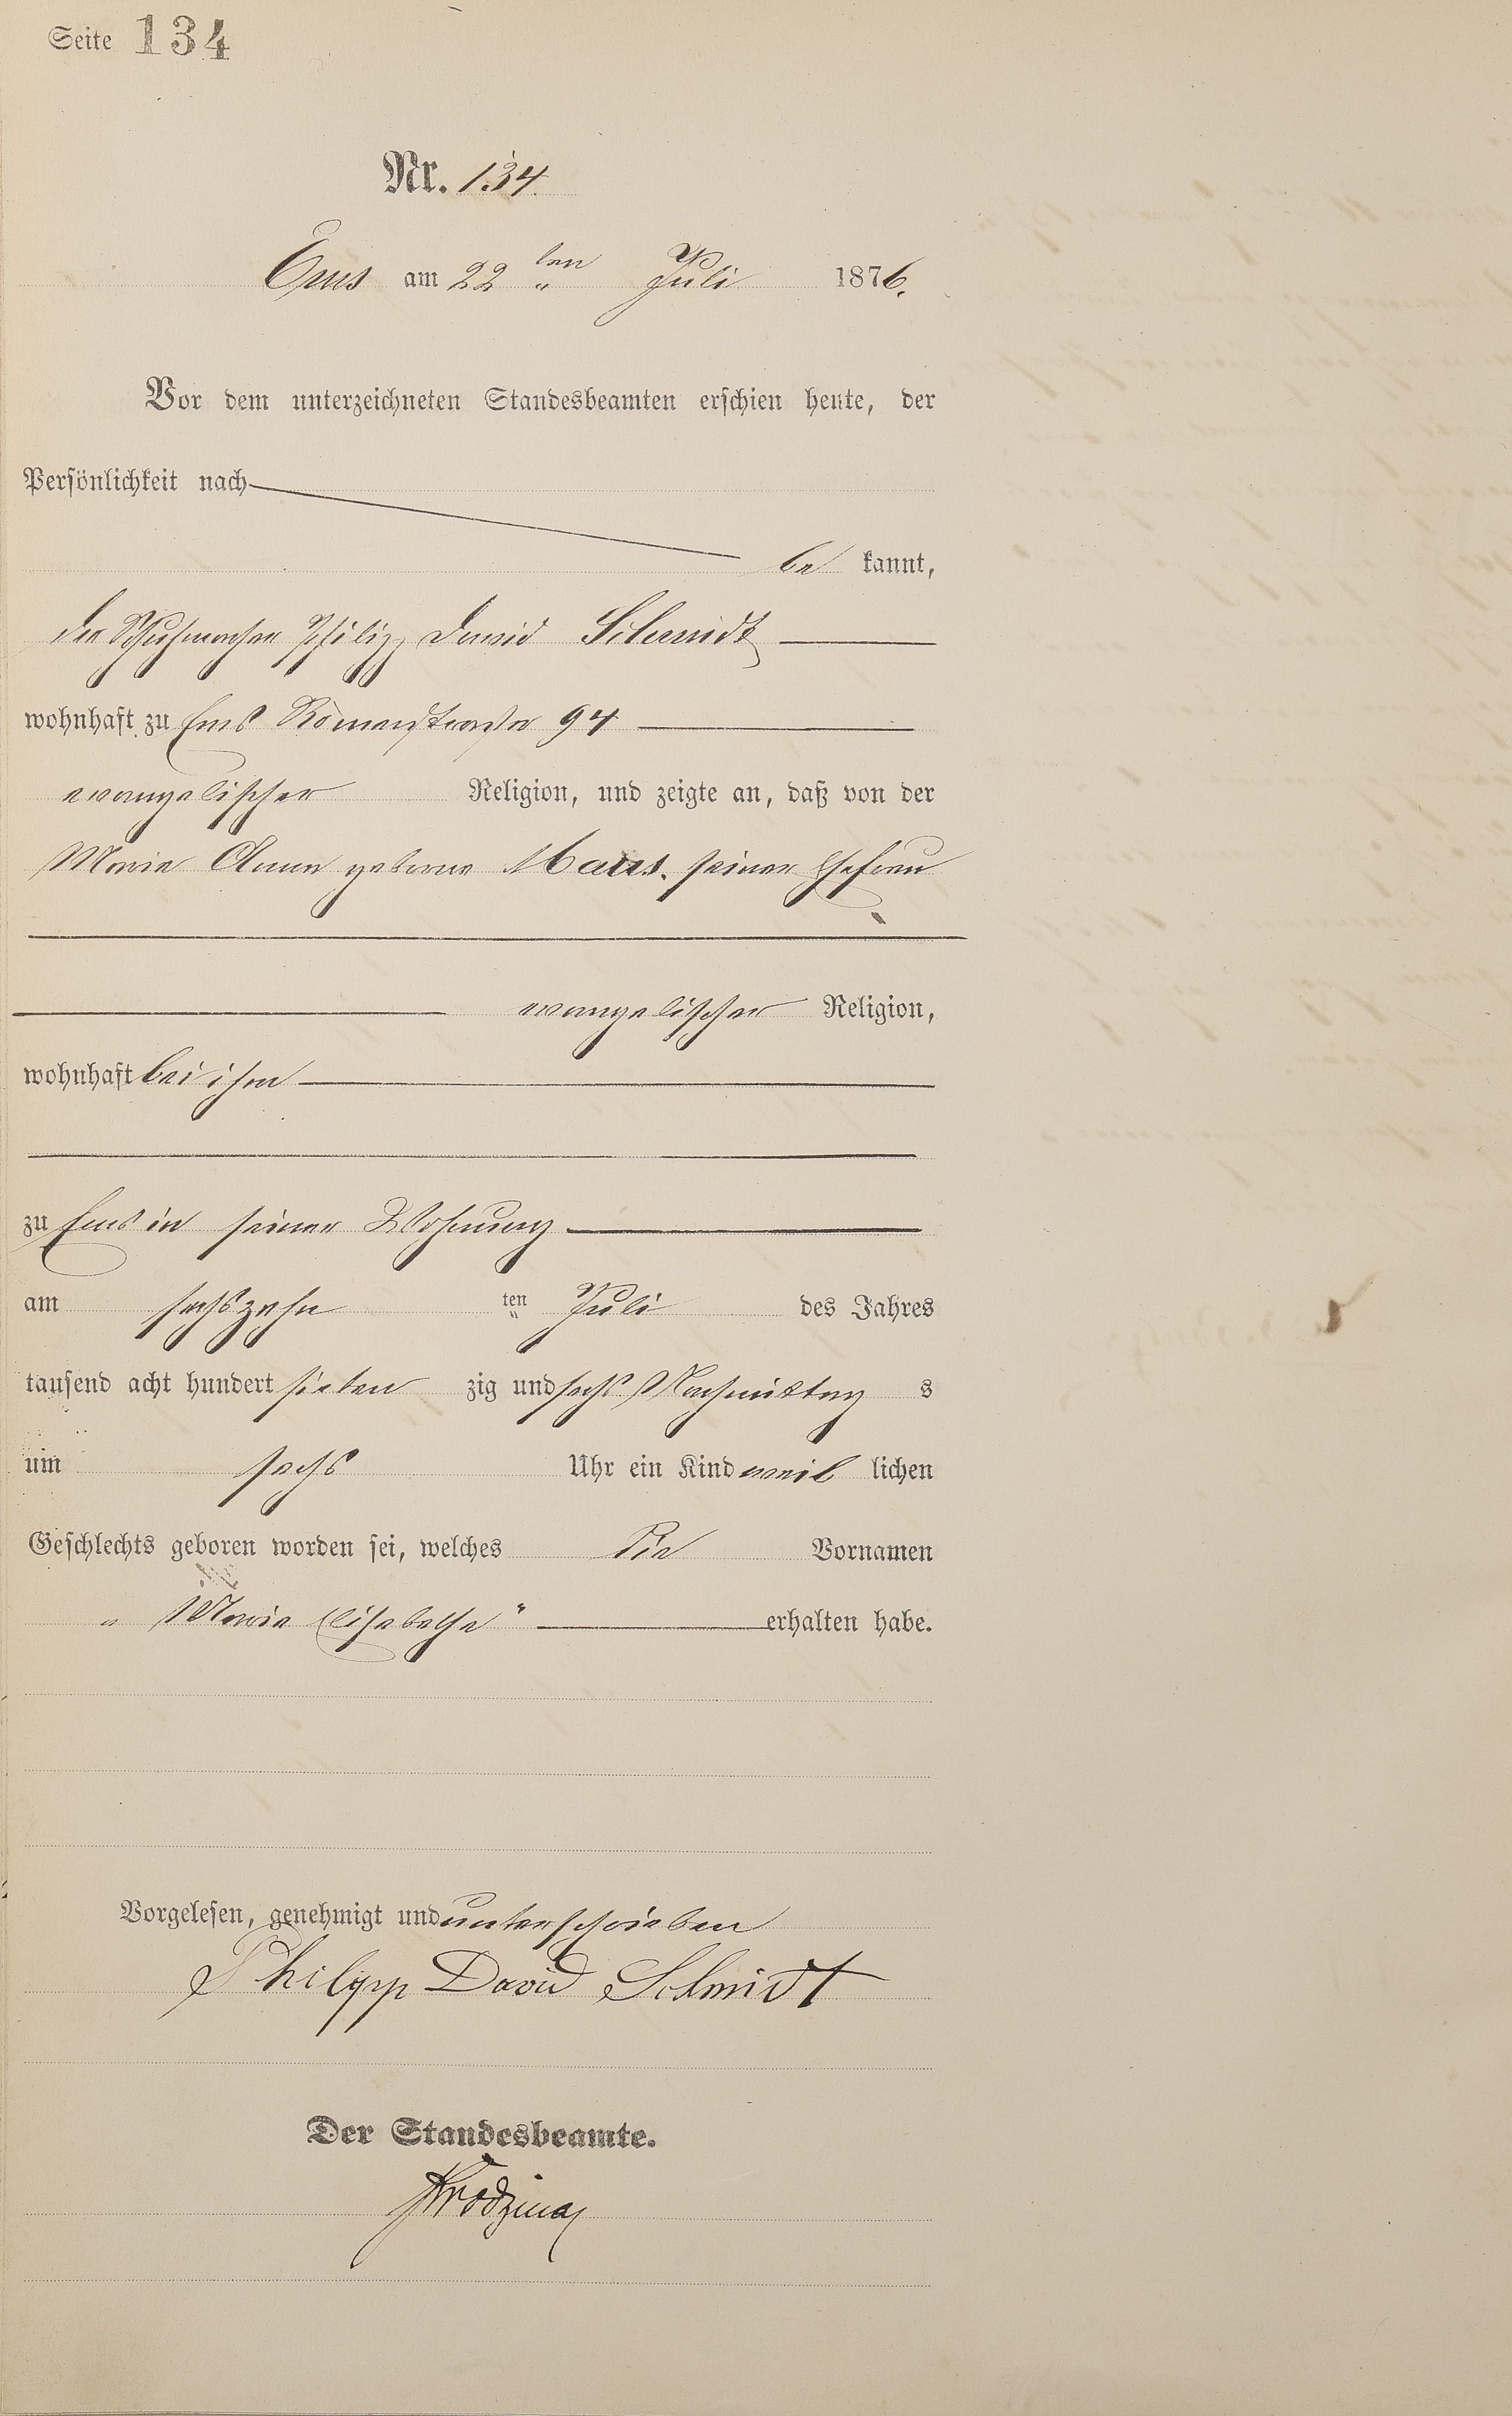 Seite 134
Nr. 134.
Ems am 22 ten " Juli 1876.
Vor dem unterzeichneten Standesbeamten erschien heute, der
Persönlichkeit nach
be kannt,
der Schuhmacher Philipp David Schmidt
wohnhaft zu Ems Römerstrasse 94
evangelischer Religion, und zeigte an, daß von der
Maria Anna geborne Maus. seiner Ehefrau
evangelischer Religion,
wohnhaft bei ihm
zu Ems in seiner Wohnung
am sechszehn ten " Juli des Jahres
tausend acht hundert sieben zig und sechs Nachmittag s
um sechs Uhr ein Kind weib lichen
Geschlechts geboren worden sei, welches die Vornamen
„ Maria Elisabetha " erhalten habe.
Vorgelesen, genehmigt und unterschrieben
Philipp David Schmidt
Der Standesbeamte.